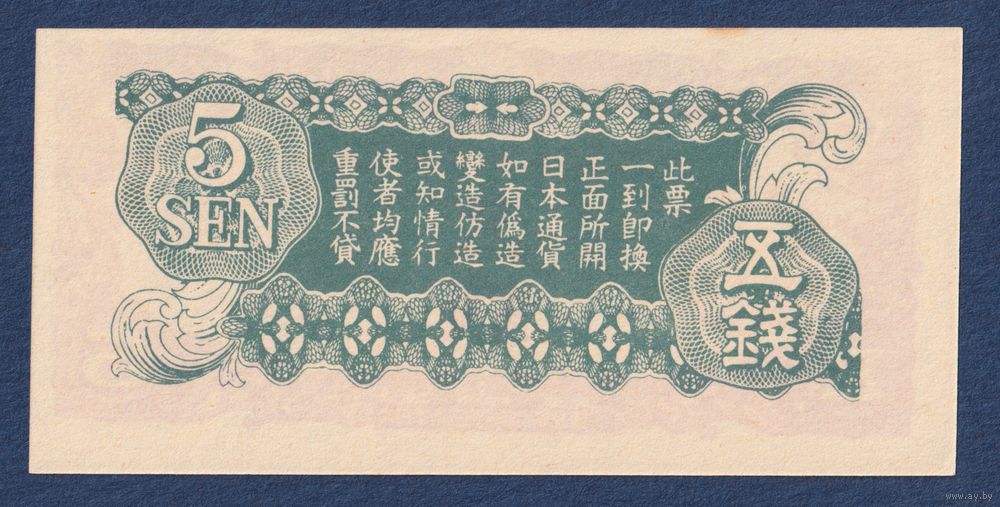 5
SEN
此票
一到即換
正面所開
日本通貨
如有偽造
變造仿造
或知情行
使者均應
重罰不貸
五
錢
www.ay.by